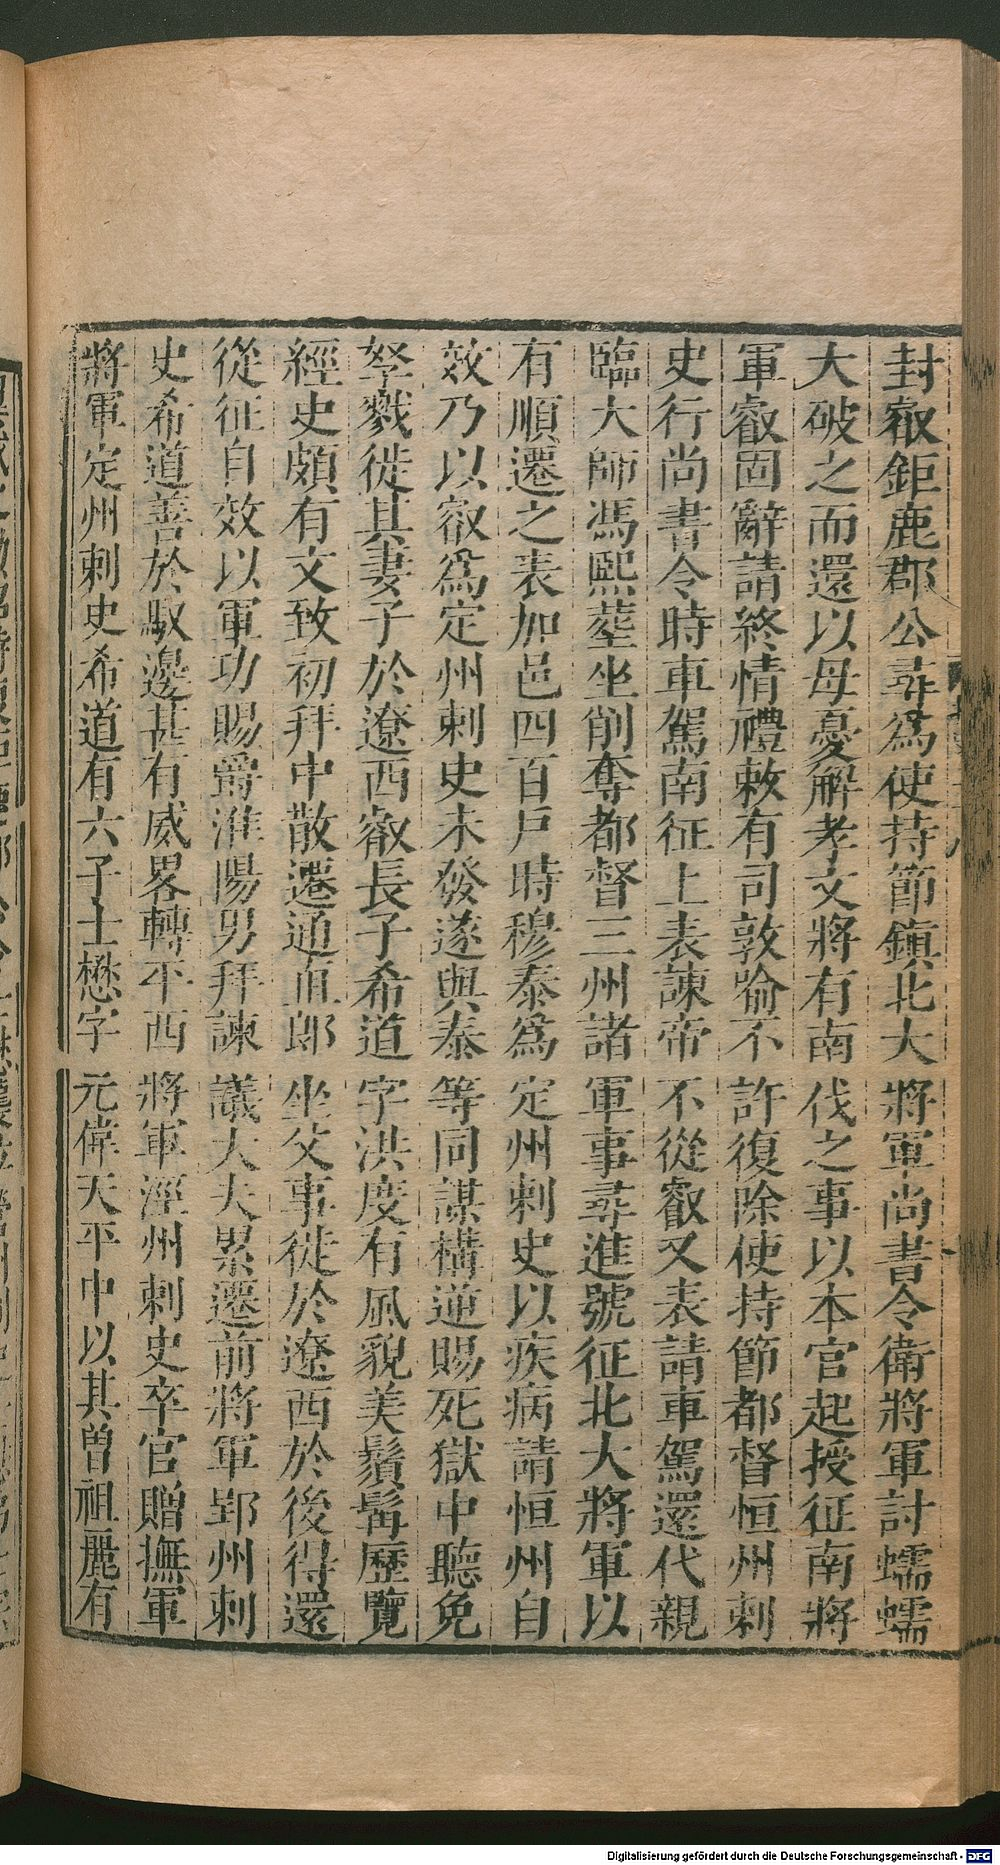 封叡鉅鹿郡公尋爲使持節鎭北大將軍尚書令衛將軍討蠕蠕
大破之而還以母憂解孝文將有南伐之事以本官起授征南將
軍叡固辭請終情禮敕有司敦喻不許復除使持節都督恒州刺
史行尚書令時車駕南征上表諫帝不從叡又表請車駕還代親
臨大師馮熙塟坐削奪都督三州諸軍事尋進號征北大將軍以
有順遷之表加邑四百戸時穆泰爲定州刺史以疾病請恒州自
效乃以叡爲定州刺史未發遂與泰等同謀構逆賜死獄中聽免
孥戮徙其妻子於遼西叡長子希道字洪度有風貌美鬚髯歷覽
經史頗有文致初拜中散遷通直郎坐父事徙於遼西於後得還
從征自效以軍功賜爵淮陽男拜諫議大夫累遷前將軍郢州刺
史希道善於馭邊甚有威畧轉平西將軍涇州刺史卒官贈撫軍
將軍定州刺史希道有六子士懋字元偉天平中以其曽祖麗有
Digitalisierung gefördert durch die Deutsche Forschungsgemeinschaft - DFG